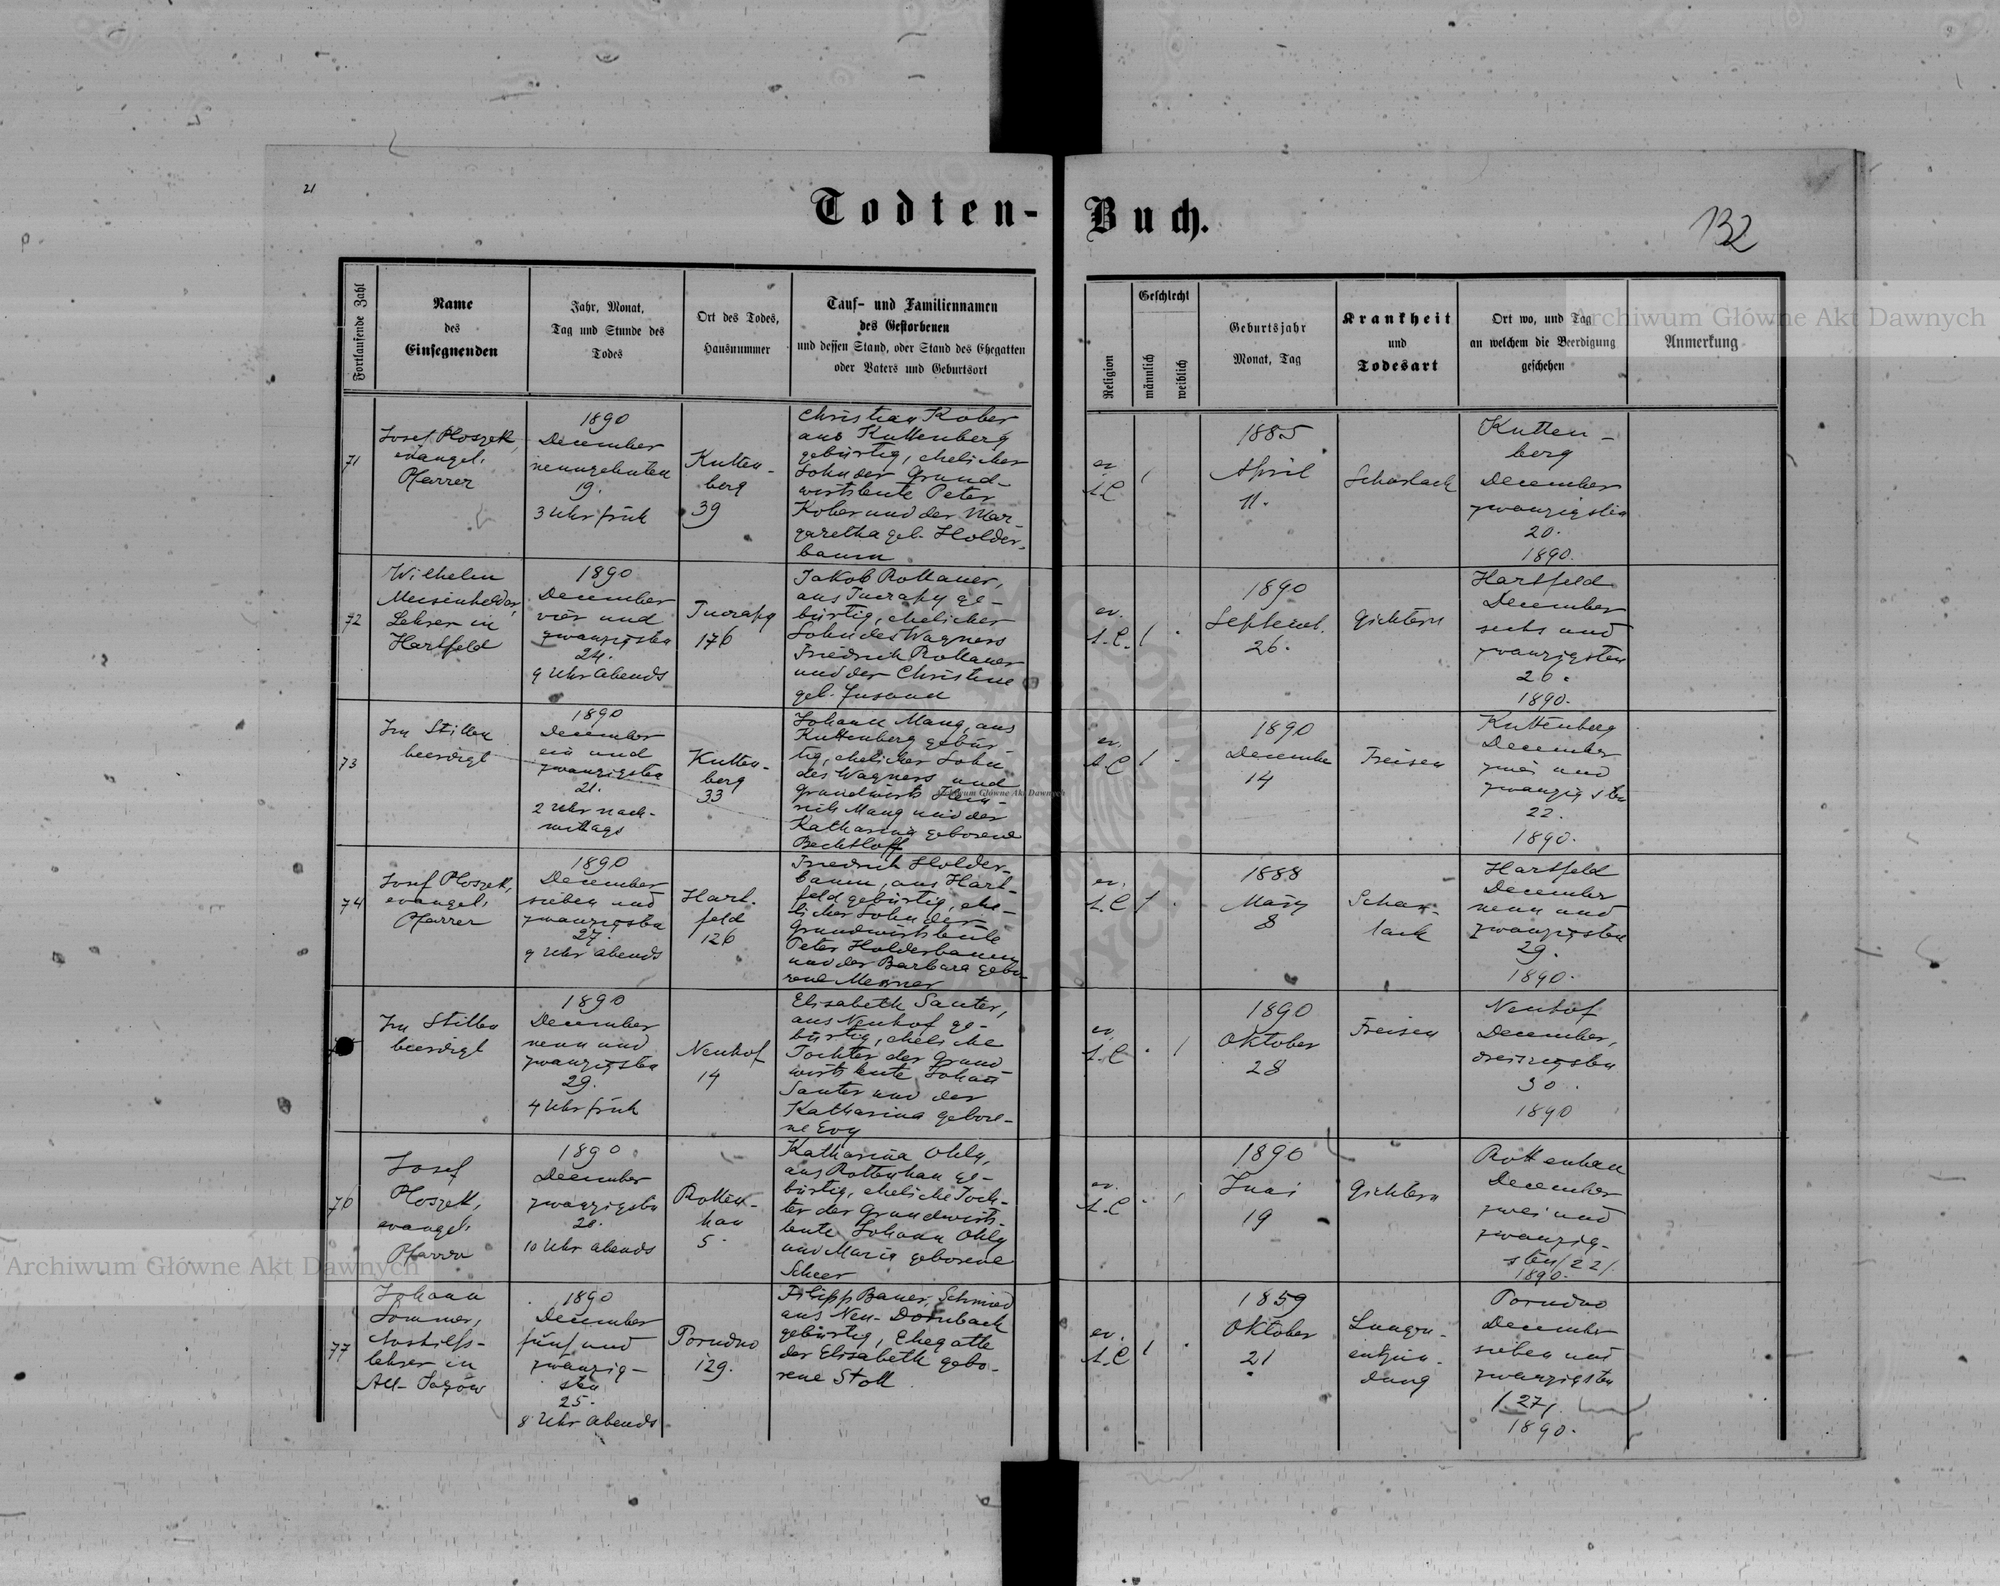 21
Todten-Buch.
132
Fortlaufende Zahl
Name
des
Einsegnenden
Jahr, Monat,
Tag und Stunde des
Todes
Ort des Todes,
Hausnummer
Tauf- und Familiennamen
des Gestorbenen
und dessen Stand, oder Stand des Ehegatten
oder Vaters und Geburtsort
Religion
Geschlecht
männlich
weiblich
Geburtsjahr
Monat, Tag
Krankheit
und
Todesart
Ort wo, und Tag
an welchem die Beerdigung
geschehen
Anmerkung
Archiwum Główne Akt Dawnych
71
Josef Ploszek,
evangel.
Pfarrer
1890
December
neunzehnten
19.
3 Uhr früh
Kutten-
berg
39
Christian Kober
aus Kuttenberg
gebürtig, ehelicher
Sohn der Grund-
wirtsleute Peter
Kober und der Mar-
garetha geb. Holder-
baum
ev.
A.C
1
1885
April
11.
Scharlach
Kutten-
berg
December
zwanzigsten
20.
1890.
72
Wilhelm
Lehrer in
Hartfeld
1890
December
vier und
zwanzigsten
24.
9 Uhr abends
Tucrapy
176
Jakob Rollauer,
aus Tucrapy ge-
bürtig, ehelicher
Sohn des Wagners
Friedrich Rollauer
und der Christine
geb. Jusand
ev.
A.C.
1
1890
Septemb.
26.
Gichtern
Hartfeld
December
sechs und
zwanzigsten
26.
1890.
73
Im Stillen
beerdigt
1890
December
ein und
zwanzigsten
21.
2 Uhr nach-
mittags
Kutten-
berg
33
Johann Mang, aus
Kuttenberg gebür-
tig, ehelicher Sohn
des Wagners und
Grundwirts Hein-
rich Mang und der
Katharina geborene
Bechtloff
ev.
A.C
1
1890
December
14
Freisen
Kuttenberg
December
zwei und
zwanzigsten
22.
1890.
74
Josef Ploszek,
evangel.
Pfarrer
1890
December
sieben und
zwanzigsten
27.
9 Uhr abends
Hart-
feld
126
Friedrich Holder-
baum, aus Hart-
feld gebürtig, ehe-
licher Sohn der
Grundwirtsleute
Peter Holderbaum
und der Barbara gebo-
rene Messner
ev.
A.C
1
1888
März
8
Schar-
lach
Hartfeld
December
neun und
zwanzigsten
29.
1890.
Im Stillen
beerdigt
1890
December
neun und
zwanzigsten
29.
4 Uhr früh
Neuhof
14
Elisabeth Sauter,
aus Neuhof ge-
bürtig, eheliche
Tochter der Grund-
wirtsleute Johann
Sauter und der
Katharina gebore-
ne Evy
ev.
A.C
1
1890
Oktober
28
Freisen
Neuhof
December,
dreissigsten
30.
1890
76
Josef
Ploszek,
evangel.
Pfarrer
1890
December
zwanzigsten
20.
10 Uhr abends
Rotten-
han
5
Katharina Ohly,
aus Rottenhan ge-
bürtig, eheliche Toch-
ter der Grundwirts-
leute Johann Ohly
und Maria geborene
Scheer
ev.
A.C
1
1890
Juni
19
Gichtern
Rottenhan
December
zwei und
zwanzig-
sten /22/
1890.
77
Johann
Sommer,
Aushilfs-
lehrer in
Alt-Jazow
1890
December
fünf und
zwanzig-
sten
25.
8 Uhr abends
Porudno
129.
Filipp Bauer, Schmied
aus Neu-Dornbach
gebürtig, Ehegatte
der Elisabeth gebo-
rene Stoll
ev.
A.C
1
1859
Oktober
21
Lungen-
entzün-
dung
Porudno
December
sieben und
zwanzigsten
/27/
1890.
Archiwum Główne Akt Dawnych